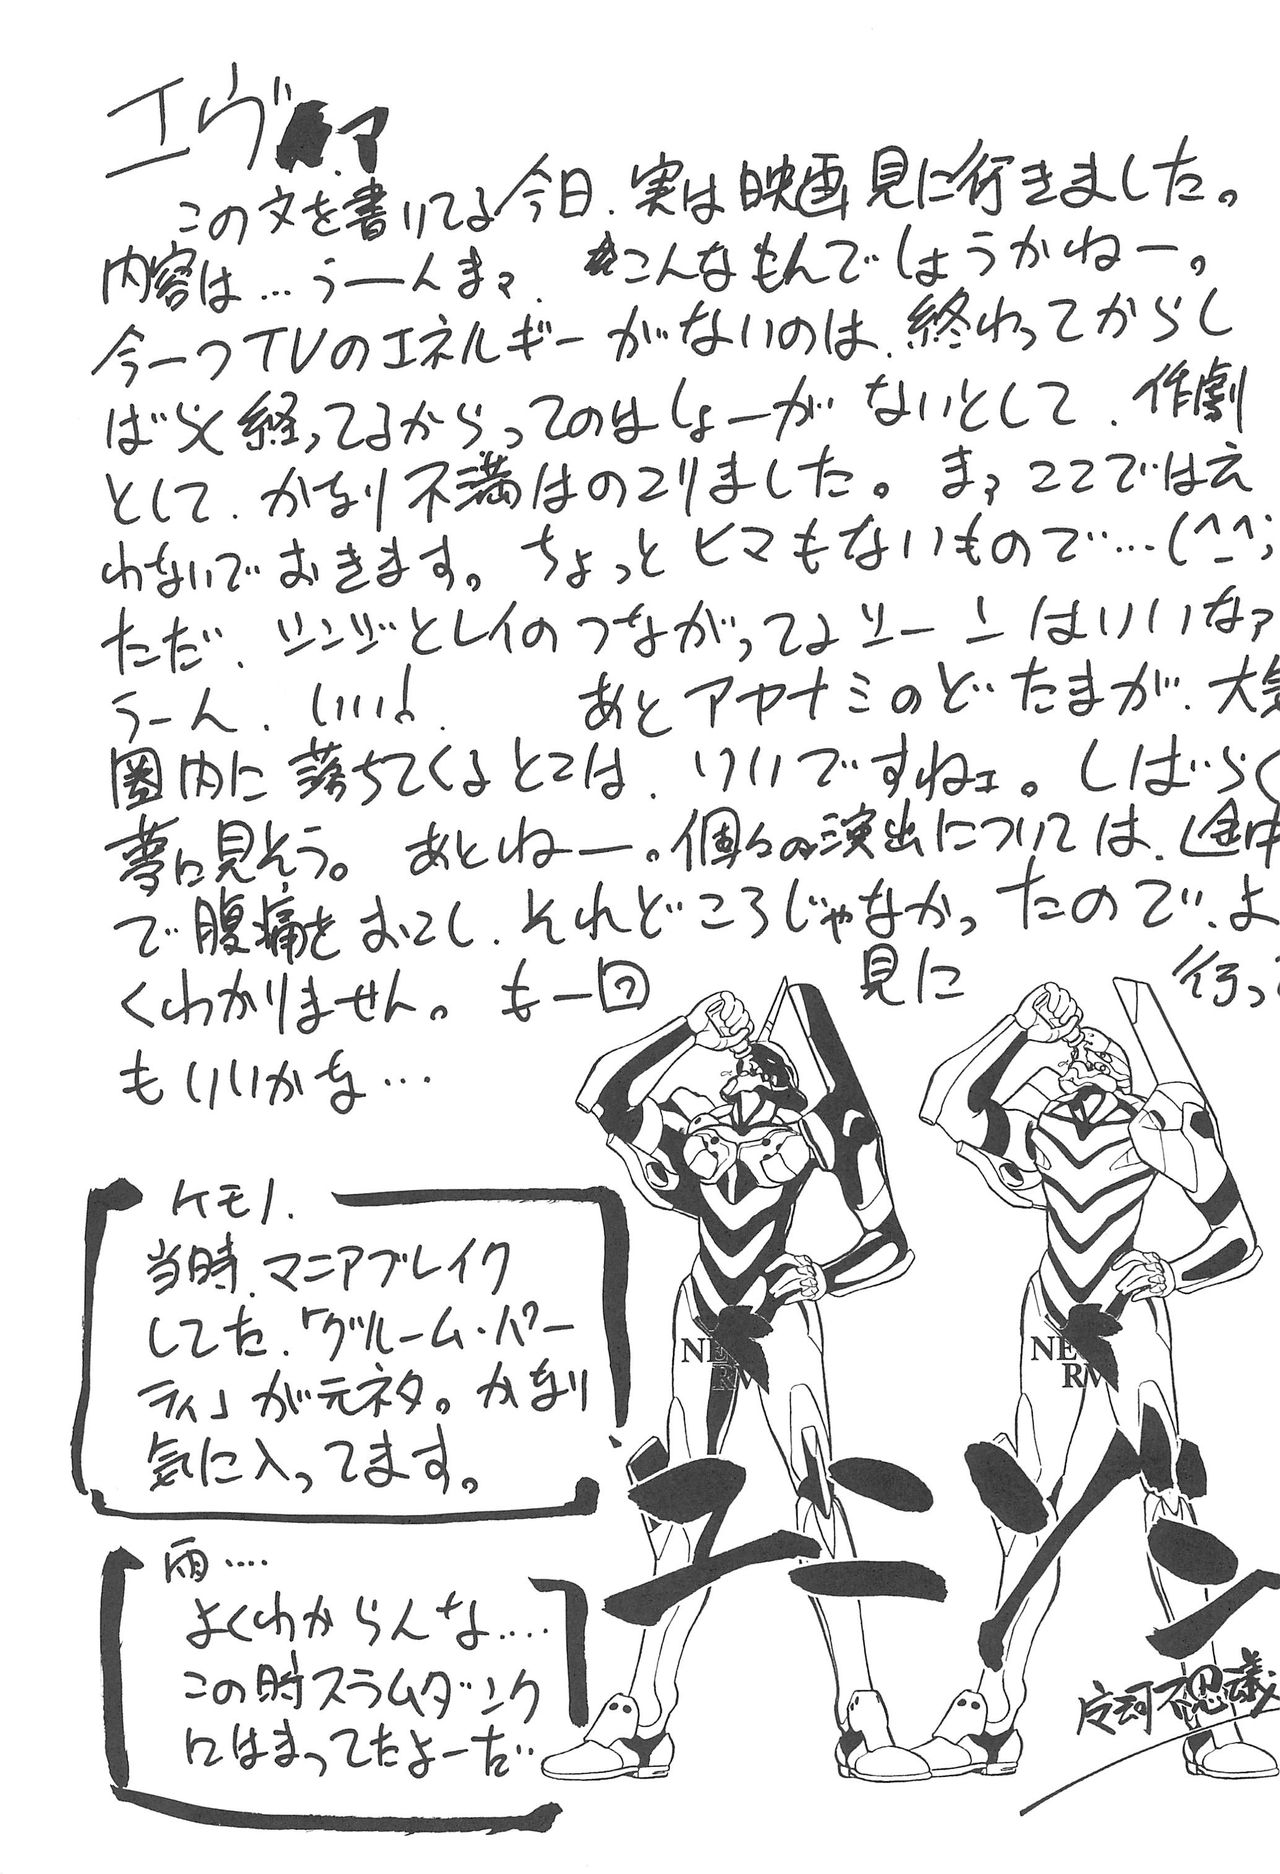 エヴァ
この文を書いてる今日、実は映画見に行きました。
内容は…うーんまァ、こんなもんでしょうかねー。
今一つTVのエネルギーがないのは、終わってからし
ばらく経ってるからってのはしょーがないとして、作劇
として、かなり不満はのこりました。まァここではえ
わないでおきます。ちょっとヒマもないもので…(^_^;
ただ、シンジとレイのつながってるシーンはいいなァ
うーん、いい! あとアヤナミのどたまが、大気
圏内に落ちてくるとこは、いいですねェ。しばらく
夢に見そう。あとねー。個々の演出については、途中
で腹痛をおこし、それどころじゃなかったので、よ
くわかりません。も一回見に行っ
もいいかな…
ケモノ、
当時、マニアブレイク
してた、「グルーム・パー
ティ」が元ネタ。かなり
気に入ってます。
雨‥‥
よくわからんな‥‥
この時スラムダンク
にはまってたよーだ
NE
RV
NE
RV
不思議